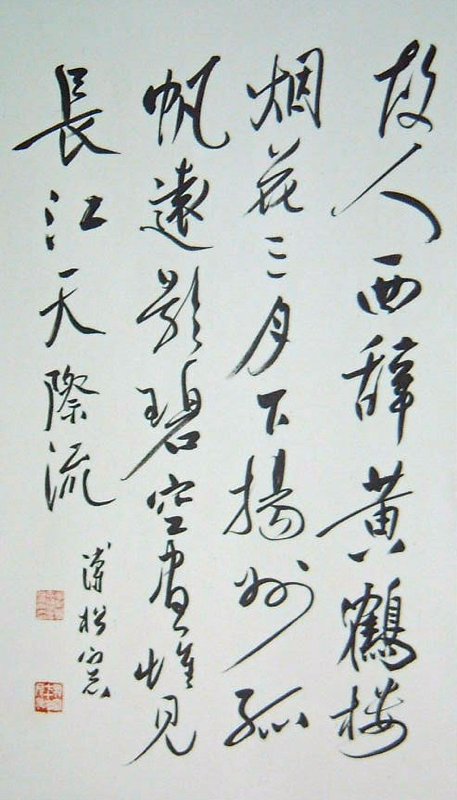 故人西辞黄鶴楼
烟花三月下揚州孤
帆遠影碧空盡惟見
長江天際流
溥松窓